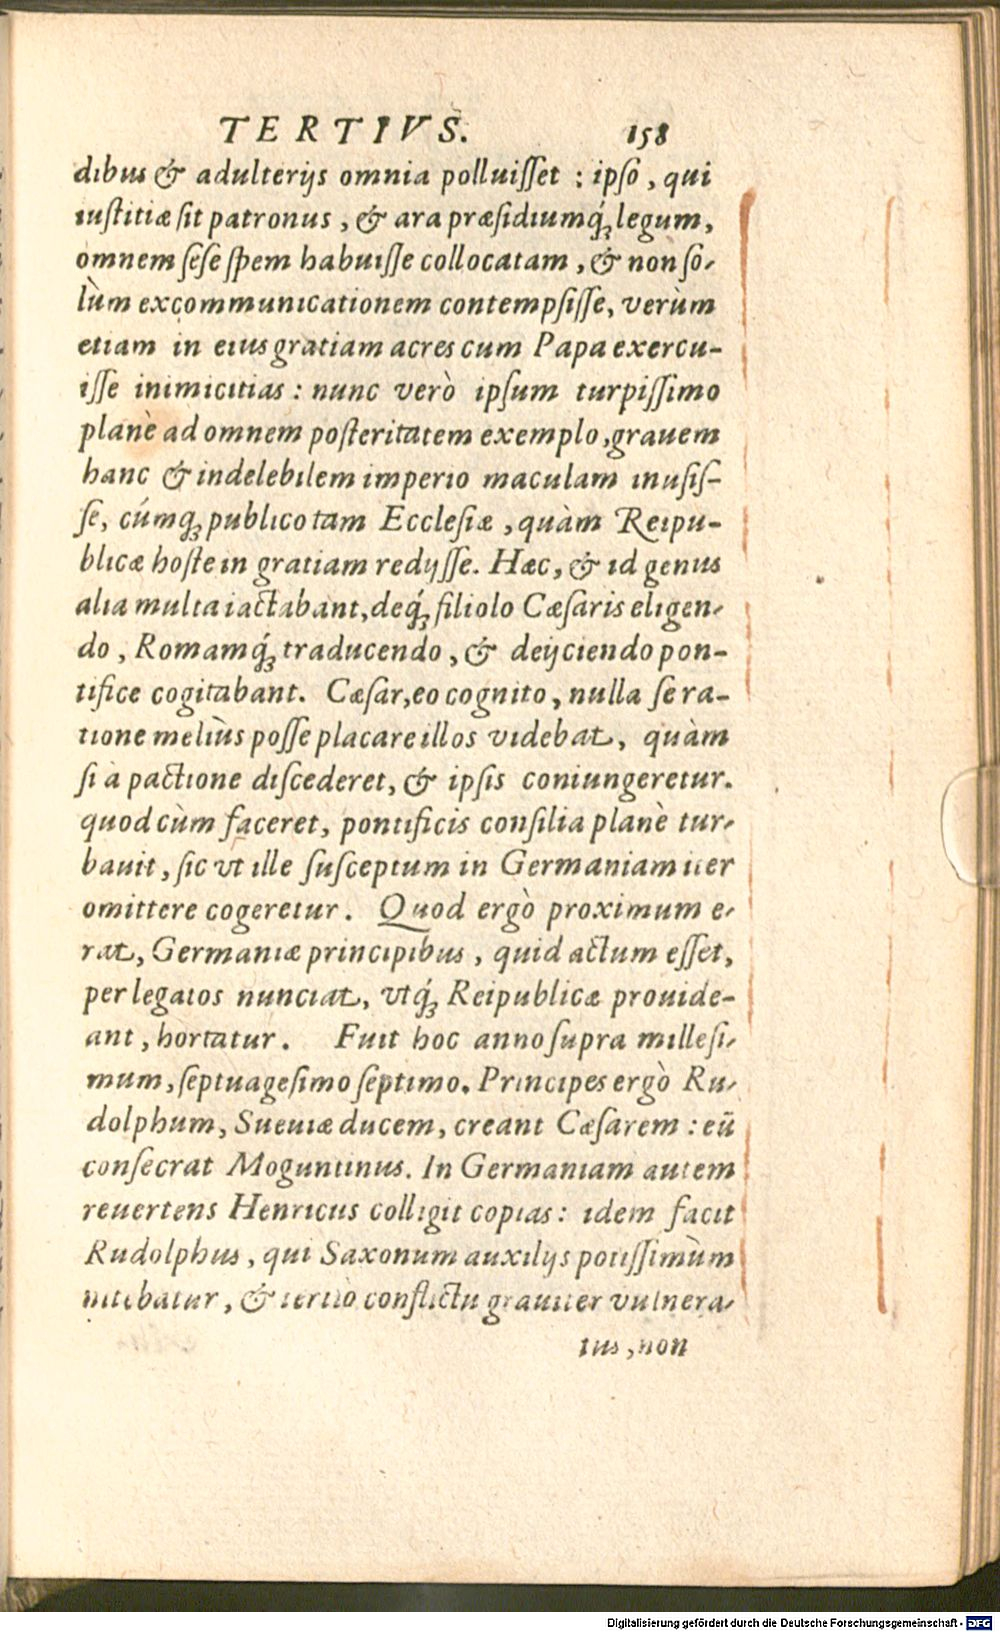 TERTIVS. 158
dibus & adulterijs omnia polluisset : ipso, qui
iustitiæ sit patronus, & ara præsidiumq́; legum,
omnem sese spem habuisse collocatam, & non so-
lùm excommunicationem contempsisse, verùm
etiam in eius gratiam acres cum Papa exercu-
isse inimicitias : nunc verò ipsum turpissimo
planè ad omnem posteritatem exemplo, grauem
hanc & indelebilem imperio maculam inusis-
se, cúmq; publico tam Ecclesiæ, quàm Reipu-
blicæ hoste in gratiam redijsse. Hæc, & id genus
alia multa iactabant, deq́; filiolo Cæsaris eligen-
do, Romamq́; traducendo, & deijciendo pon-
tifice cogitabant. Cæsar, eo cognito, nulla se ra-
tione meliùs posse placare illos videbat, quàm
si à pactione discederet, & ipsis coniungeretur.
quod cùm faceret, pontificis consilia planè tur-
bauit, sic vt ille susceptum in Germaniam iter
omittere cogeretur. Quod ergò proximum e-
rat, Germaniæ principibus, quid actum esset,
per legatos nunciat, vtq́; Reipublicæ prouide-
ant, hortatur. Fuit hoc anno supra millesi-
mum, septuagesimo septimo. Principes ergò Ru-
dolphum, Sueuiæ ducem, creant Cæsarem : eū
consecrat Moguntinus. In Germaniam autem
reuertens Henricus colligit copias : idem facit
Rudolphus, qui Saxonum auxilijs potissimùm
nitebatur, & tertiò conflictu grauiter vulnera-
tus, non
Digitalisierung gefördert durch die Deutsche Forschungsgemeinschaft - DFG